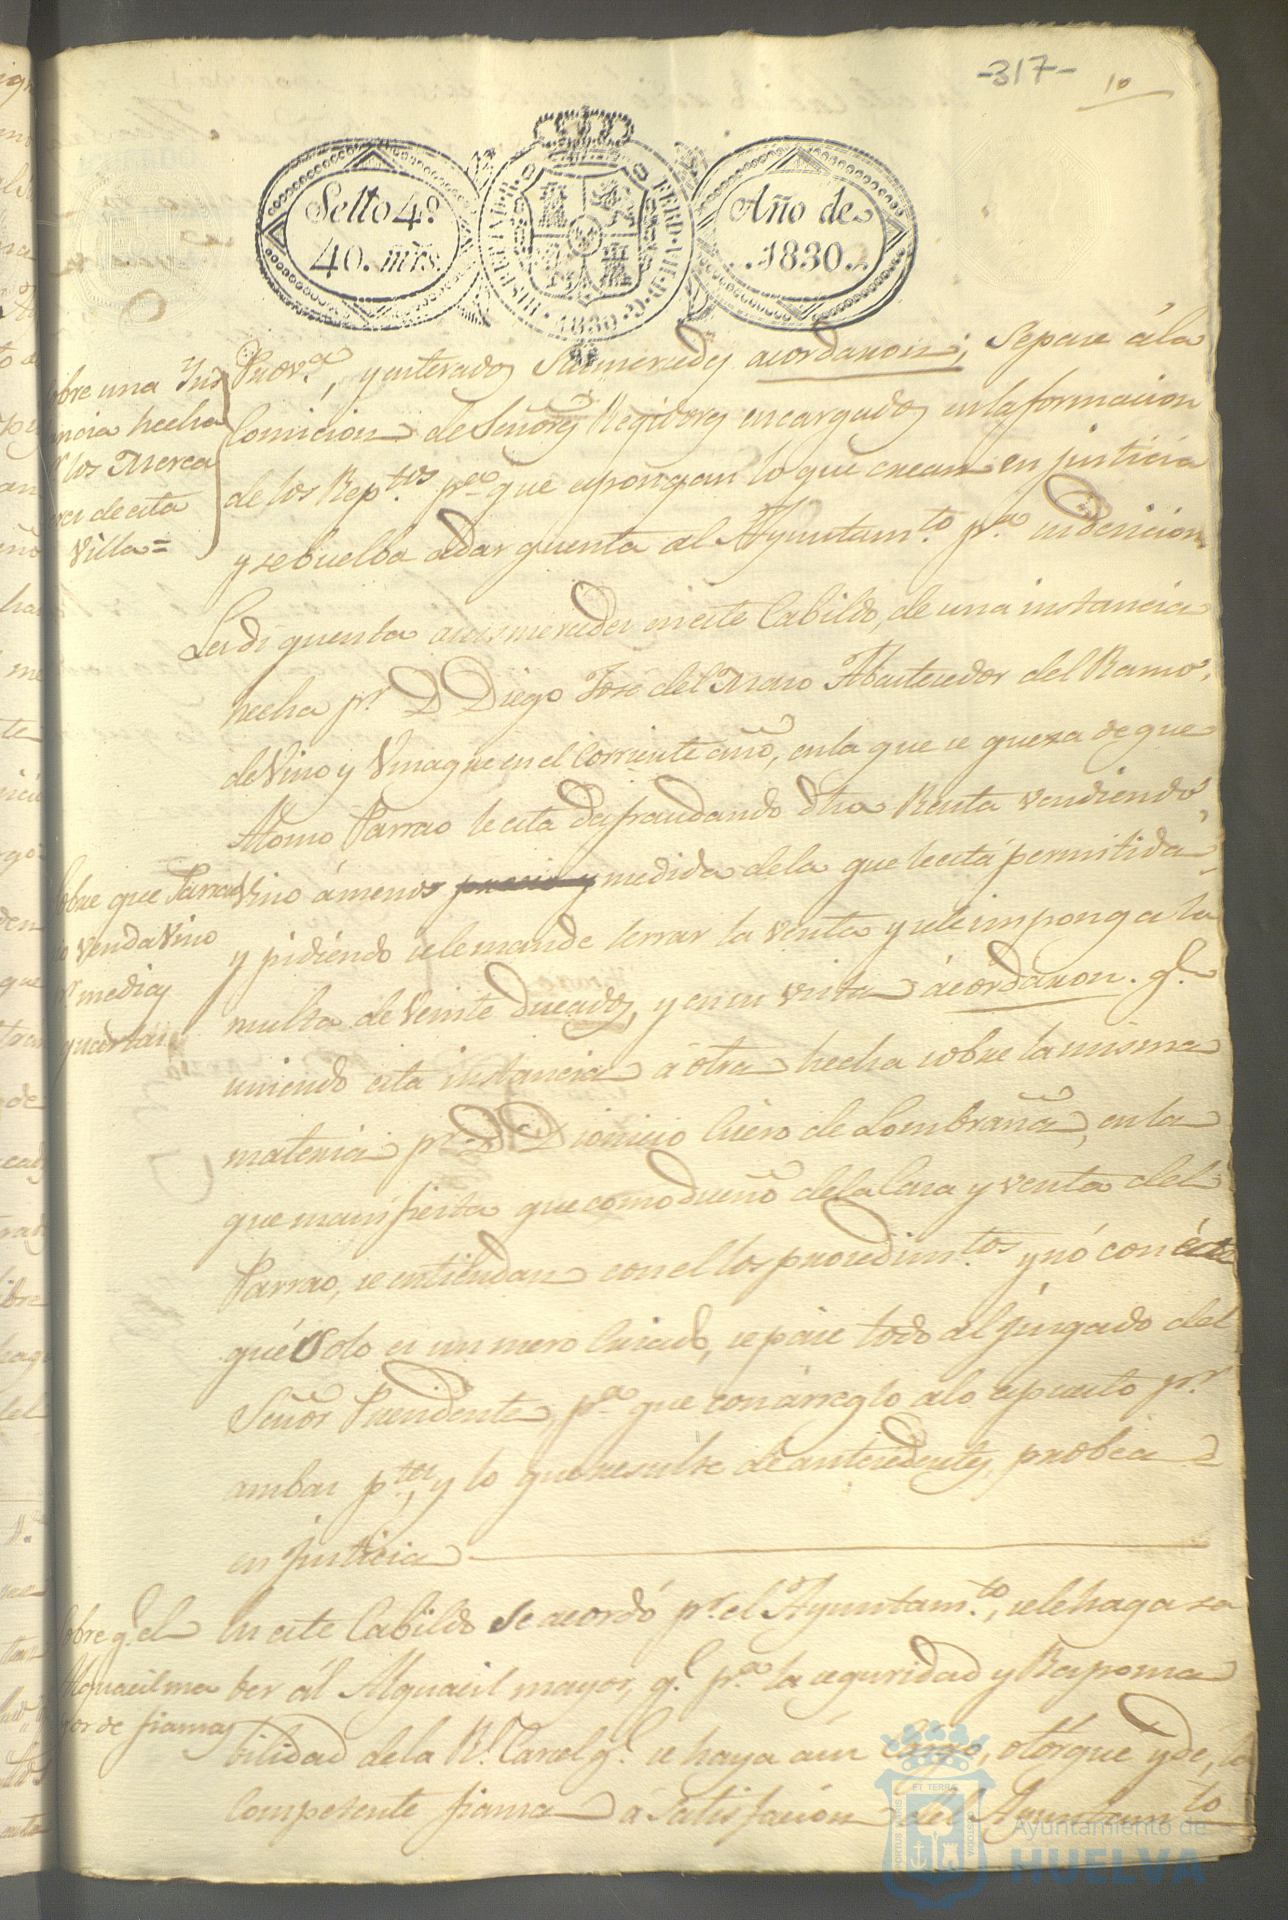 -317-
10
Sello 4º
40. mrs.
HISPANIAR. REX
FERD. VII. D. G.
1830.
Año de
1830.
Sobre una Yns
tancia hecha
pr. los Merca
eres de esta
Villa=
Prov.a, y enterados Susmercedes acordaron; Se pase á la
Comicion de Señores Regidores encargados en la formacion
de los Rep.tos p.a que espongan lo que crean en justicia
y se buelba a dar quenta al Ayuntam.to p.a su decicion
Les dí quenta a sus mercedes en este Cabildo, de una instancia
hecha p.r D. Diego Jose del Mazo Abastecedor del Ramo
de Vino y Vinagre en el corriente año, en la que se quexa de que
Alonso Parrao le esta defraudando dha Renta vendiendo
Vino á menos precio y medida de la que le está permitida
y pidiendo se le mande serrar la venta y se le imponga la
multa de Veinte Ducados, y en su vista acordaron. q.e
uniendo esta instancia á otra hecha sobre la misma
materia p.r D. Dionicio Cuero de Lombraña, en la
que manifiesta que como dueño de la Casa y venta del
Parrao, se entiendan con el los procedim.tos y nó con éste
qué Solo es un mero Criado, se pase todo al juzgado del
Señor Precidente, p.a que con árreglo a lo espuesto p.r
ambas p.tes, y lo que resulte de antecedentes, probéa
en justicia
Sobre que Parrao
no venda Vino
p.r medias
y quartas
En este Cabildo Se acordó p.r el Ayuntam.to, se le haga sa
ber ál Alguacil mayor, q.e p.a la seguridad y Responsa
bilidad de la R.l Carcel q.e se haya á su Cargo, otorgue y dé, la
competente fianza á satisfacion del Ayuntam.to
Sobre q.e el
Alguacil ma
yor de fianzas
PORTUS MARIS ET TERRAE CUSTODIA
Ayuntamiento de
HUELVA